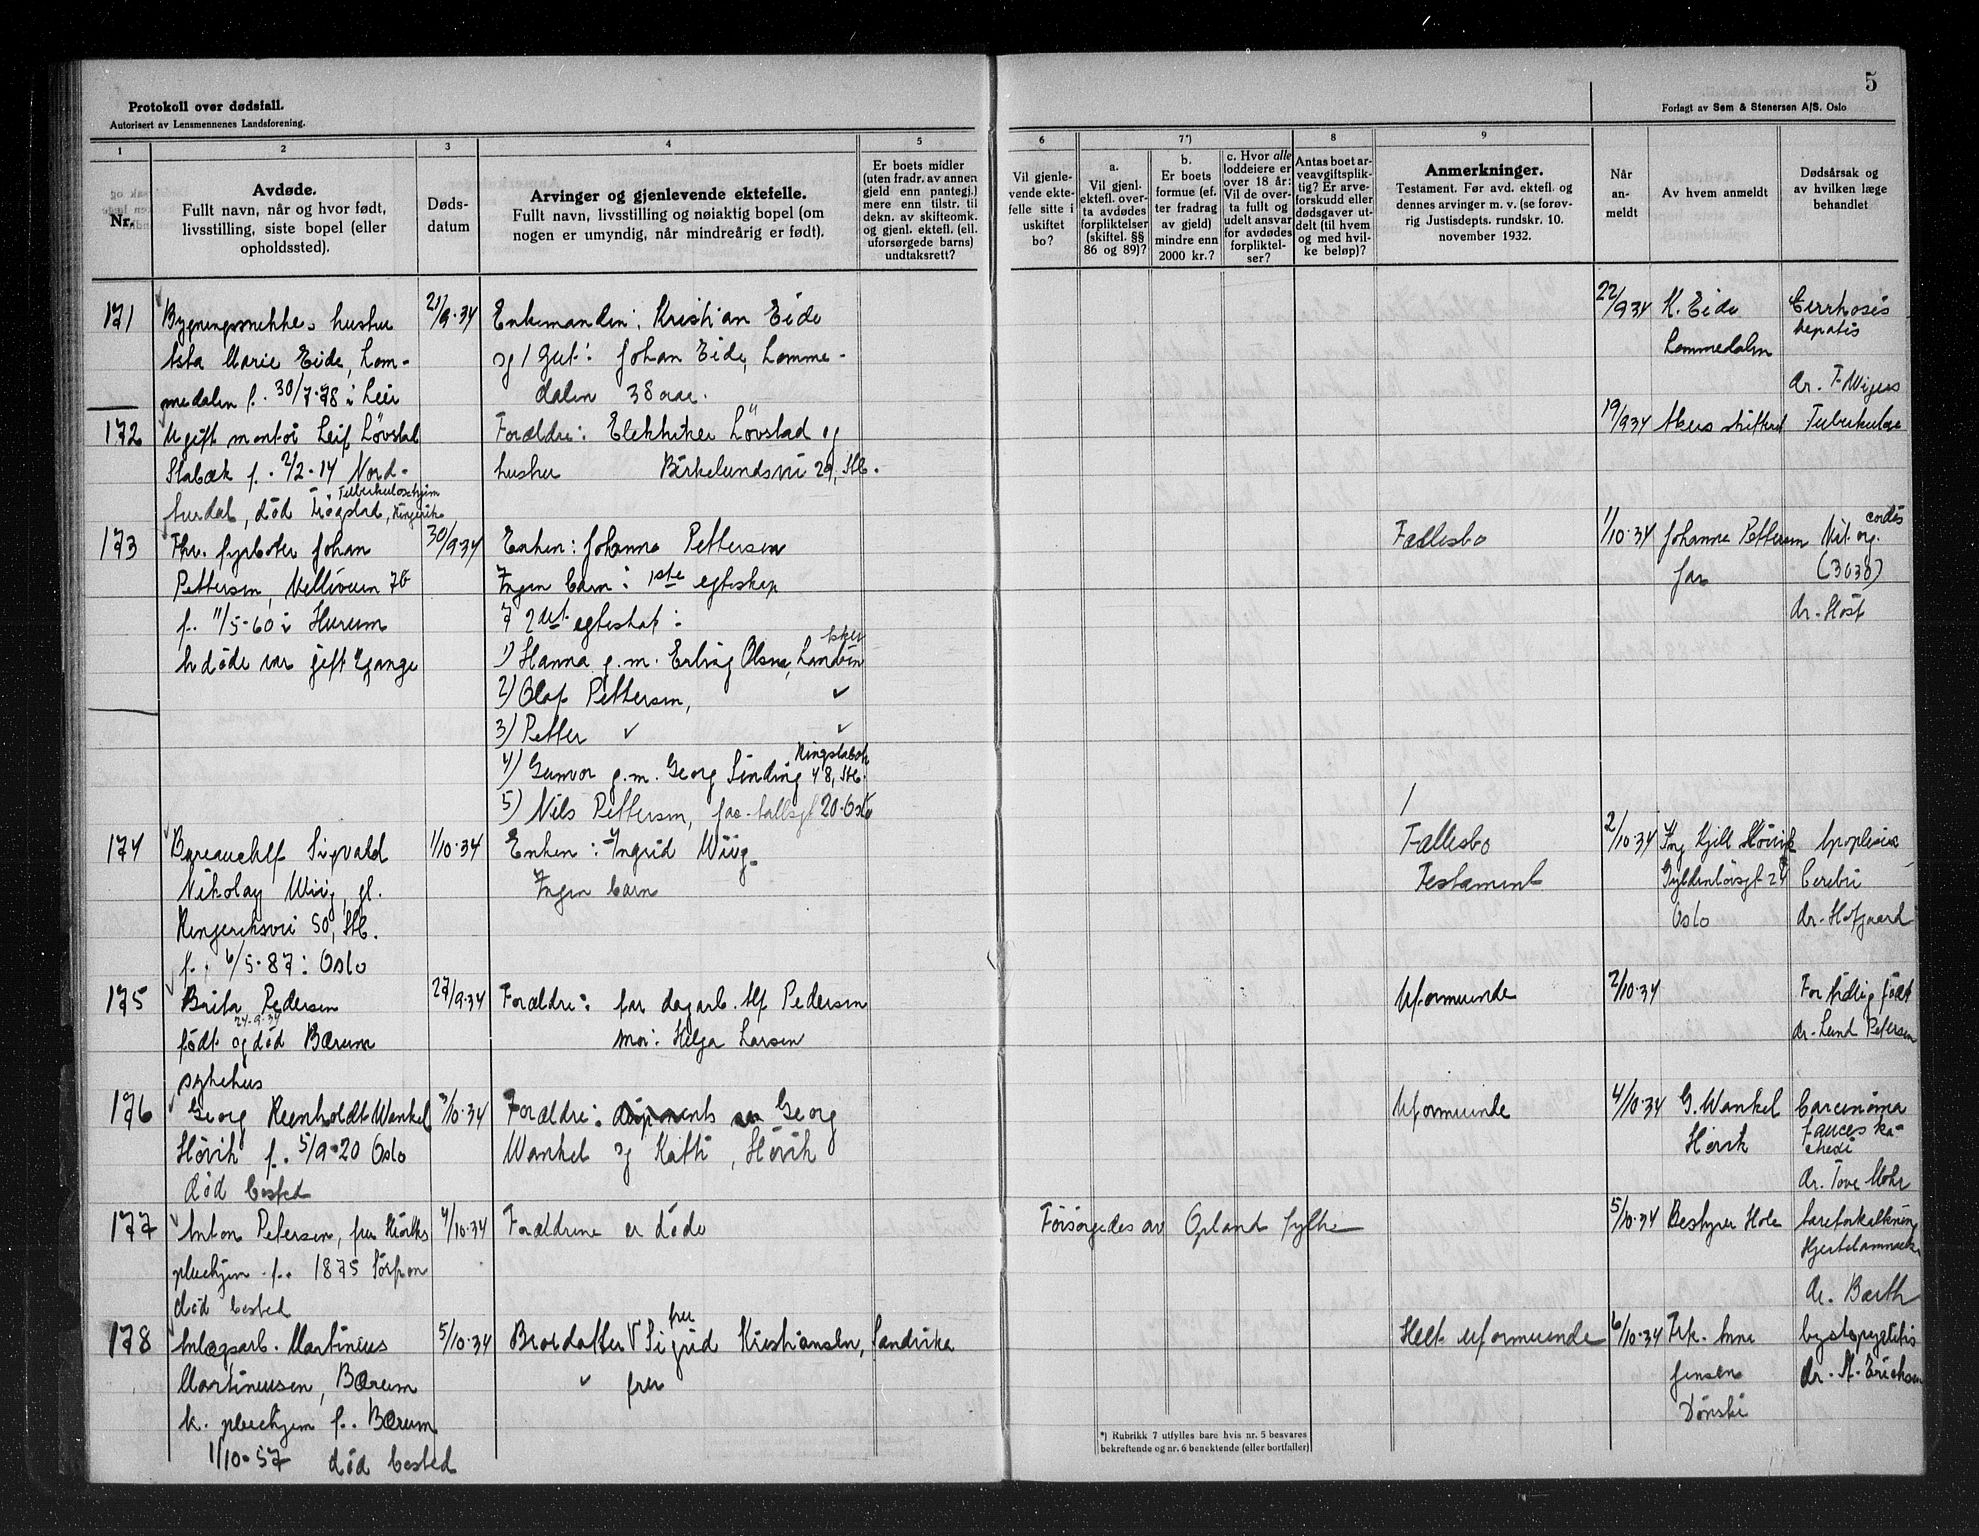 Protokoll over dødsfall.
Autorisert av Lensmennenes Landsforening.
5
Forlagt av Sem & Stenersen A/S. Oslo
1
Nr.
2
Avdøde.
Fullt navn, når og hvor født,
livsstilling, siste bopel (eller
opholdssted).
3
Døds-
datum
4
Arvinger og gjenlevende ektefelle.
Fullt navn, livsstilling og nøiaktig bopel (om
nogen er umyndig, når mindreårig er født).
5
Er boets midler
(uten fradr. av annen
gjeld enn pantegj.)
mere enn tilstr. til
dekn. av skifteomk.
og gjenl. ektefl. (ell.
uforsørgede barns)
undtaksrett?
6
Vil gjenle-
vende ekte-
felle sitte i
uskiftet
bo?
7*)
a.
Vil gjenl.
ektefl. over-
ta avdødes
forpliktelser
(skiftel. §§
86 og 89)?
b.
Er boets
formue (ef-
ter fradrag
av gjeld)
mindre enn
2000 kr.?
c. Hvor alle
loddeiere er
over 18 år:
Vil de over-
ta fullt og
udelt ansvar
for avdødes
forpliktel-
ser?
8
Antas boet ar-
veavgiftsplik-
tig? Er arve-
forskudd eller
dødsgaver ut-
delt (til hvem
og med hvil-
ke beløp)?
9
Anmerkninger.
Testament. Før avd. ektefl. og
dennes arvinger m. v. (se forøv-
rig Justisdepts. rundskr. 10.
november 1932.
Når
an-
meldt
Av hvem anmeldt
Dødsårsak og
av hvilken læge
behandlet
171
Bygningssnekker hustru
Asta Marie Eide, Lom-
medalen f. 30/7-78 i Lier
21/9-34
Enkemanden: Kristian Eide
og 1 gut: Johan Eide, Lomme-
dalen 38 aar.
22/9 34
K. Eide
Lommedalen
Cirrhosis
hepatis
dr. F.
172
Ugift montør Leif Lövstad
Stabæk f. 2/2-14 Nord-
Tuberkulosehjem
hurdal, död Trøgstad, Ringerike
Forældre: Elektriker Lövstad og
hustru Birkelundsvei 29, Stb.
19/9 34
Akers skifteret
Tuberkulose
173
Fhv. fyrböter Johan
Pettersen, 7b
f. 11/5-60 i Hurum
Avdöde var gift 2 gange
30/9 34
Enken: Johanne Pettersen
Ingen barn i 1ste egteskap
I 2det egteskap:
1) Hanna g.m. Erling Olsen,
2) Olaf Pettersen, ✓
3) Petter ✓ ✓
4) Gunvor g.m. Georg Sinding Ringstabæk
48, Stb.
5) Nils Pettersen, 20. Oslo
Fællesbo
1/10-34
Johanne Pettersen
Jar
Vit. org. cordis
(3030)
dr. Höst
174
Bureauchef Sigvald
Nikolay Wiig, gl.
Ringeriksvei 50, Stb.
f. 6/5-87 i Oslo
1/10-34
Enken: Ingrid Wiig
Ingen barn
Fællesbo
Testament
2/10-34
Ing Kjell Hövik
Gyldenlövsgt 24
Oslo
Apoplexia
Cerebri
dr. Hofgaard
175
Brita Pedersen
24-9-34
födt og död Bærum
sykehus
27/9-34
Forældre: far dagarb. Alf Pedersen
mor: Helga Larsen
Uformuende
2/10-34
For tidlig födt
dr. Lund Petersen
176
Georg Reinholdt Wankel
Hövik f. 5/9-20 Oslo
död bosted
3/10-34
Forældre: Georg
Wankel og Kathi, Hövik
Uformuende
4/10-34
G. Wankel
Hövik
Carcinoma
dr. Tove Mohr
177
Anton Petersen, fru
pleiehjem f. 1875
död bosted
4/10-34
Forældrene er döde
Forsörgedes av Opland fylke
5/10-34
Bestyrer Hole
Aareforkalkning
dr. Barth
178
Anlægsarb. Martinius
Martiniussen, Bærum
k. pleiehjem f. Bærum
1/10-57 död bosted
5/10-34
Brordatter fru Sigrid Kristiansen, Sandvika
✓ fru
Helt uformuende
6/10-34
Frk. Anne
Jensen
Dönski
Cystopyelitis
dr. A. Erichsen
*) Rubrikk 7 utfylles bare hvis nr. 5 besvares
bekreftende og nr. 6 benektende (eller bortfaller)